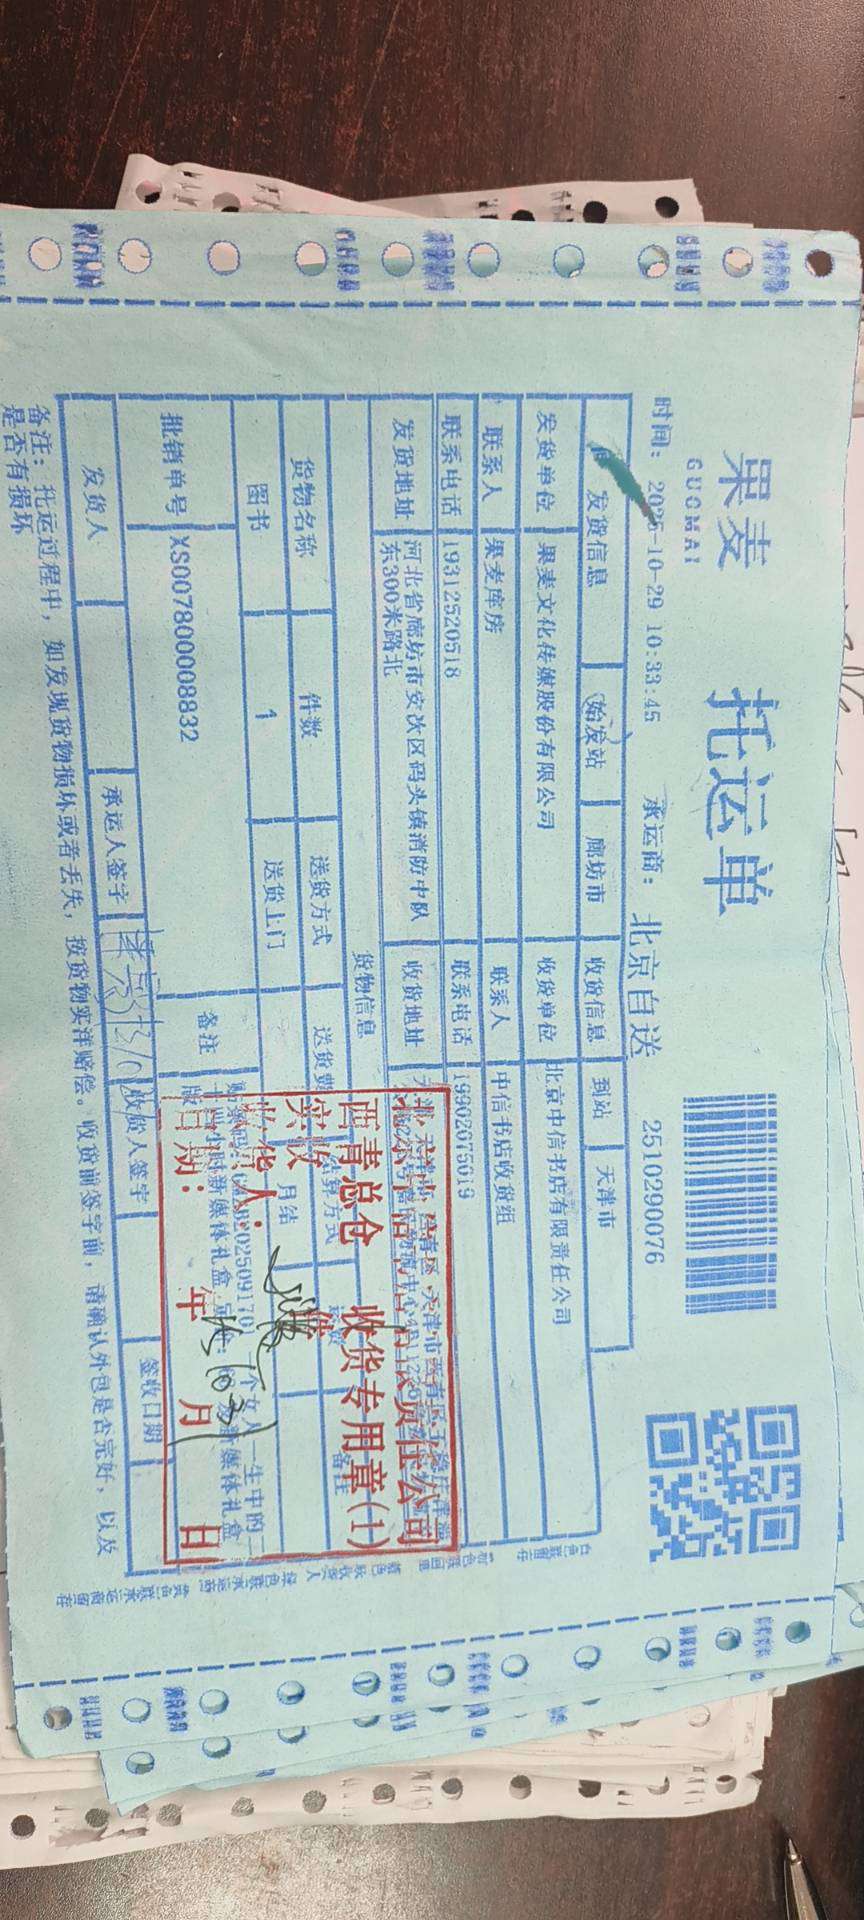 果麦
GUOMAI
托运单
时间: 2025-10-29 10:33:45 承运商: 北京自送 2510290076
发货信息 始发站 廊坊市 收货信息 到站 天津市
发货单位 果麦文化传媒股份有限公司 收货单位 北京中信书店有限责任公司
联系人 果麦库房 联系人 中信书店收货组
联系电话 19312520518 联系电话 19902075019
发货地址 河北省廊坊市安次区码头镇消防中队东300米路北 收货地址
货物信息
货物名称 件数 送货方式 送货费 结算方式 备注
图书 1 送货上门 月结
批销单号 XS007800008832 备注
发货人 承运人签字 收货人签字 签收日期
备注: 托运过程中, 如发现货物损坏或者丢失, 按货物实洋赔偿。收货前签字前, 请确认外包是否完好, 以及
是否有损坏
北京中信书店有限责任公司
西青总仓 收货专用章(1)
实收
收货人:
日期: 年 月 日